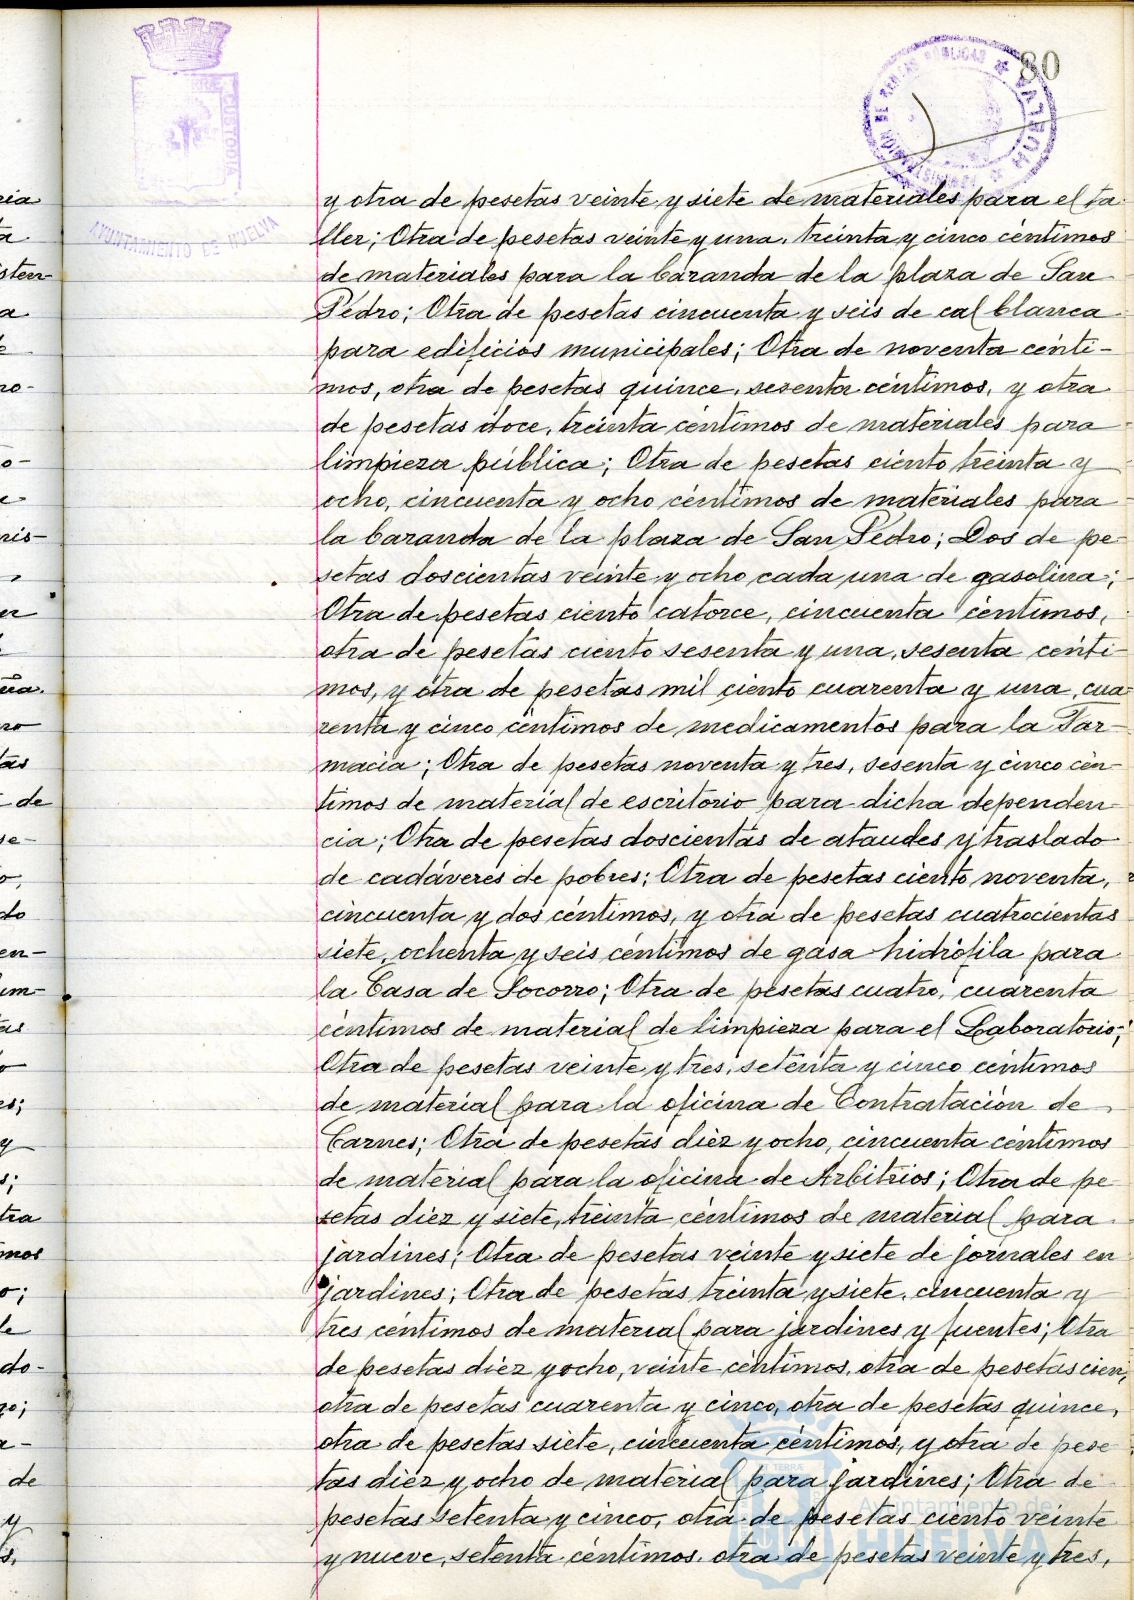 80
AYUNTAMIENTO DE HUELVA
CUSTODIA
HUELVA
y otra de pesetas veinte y siete de materiales para el ta-
ller; Otra de pesetas veinte y una, treinta y cinco céntimos
de materiales para la baranda de la plaza de San
Pedro; Otra de pesetas cincuenta y seis de cal blanca
para edificios municipales; Otra de noventa cénti-
mos, otra de pesetas quince, sesenta céntimos, y otra
de pesetas doce, treinta céntimos de materiales para
limpieza pública; Otra de pesetas ciento treinta y
ocho, cincuenta y ocho céntimos de materiales para
la baranda de la plaza de San Pedro; Dos de pe-
setas doscientas veinte y ocho cada una de gasolina;
Otra de pesetas ciento catorce, cincuenta céntimos,
otra de pesetas ciento sesenta y una, sesenta cénti-
mos, y otra de pesetas mil ciento cuarenta y una, cua-
renta y cinco céntimos de medicamentos para la Far-
macia; Otra de pesetas noventa y tres, sesenta y cinco cén-
timos de material de escritorio para dicha dependen-
cia; Otra de pesetas doscientas de ataudes y traslado
de cadáveres de pobres; Otra de pesetas ciento noventa,
cincuenta y dos céntimos, y otra de pesetas cuatrocientas
siete, ochenta y seis céntimos de gasa hidrófila para
la Casa de Socorro; Otra de pesetas cuatro, cuarenta
céntimos de material de limpieza para el Laboratorio;
Otra de pesetas veinte y tres, setenta y cinco céntimos
de material para la oficina de Contratación de
Carnes; Otra de pesetas diez y ocho, cincuenta céntimos
de material para la oficina de Arbitrios; Otra de pe-
setas diez y siete, treinta céntimos de material para
jardines; Otra de pesetas veinte y siete de jornales en
jardines; Otra de pesetas treinta y siete, cincuenta y
tres céntimos de material para jardines y fuentes; Otra
de pesetas diez y ocho, veinte céntimos, otra de pesetas cien,
otra de pesetas cuarenta y cinco, otra de pesetas quince,
otra de pesetas siete, cincuenta céntimos, y otra de pese-
tas diez y ocho de material para jardines; Otra de
pesetas setenta y cinco, otra de pesetas ciento veinte
y nueve, setenta céntimos, otra de pesetas veinte y tres,
Ayuntamiento de
HUELVA